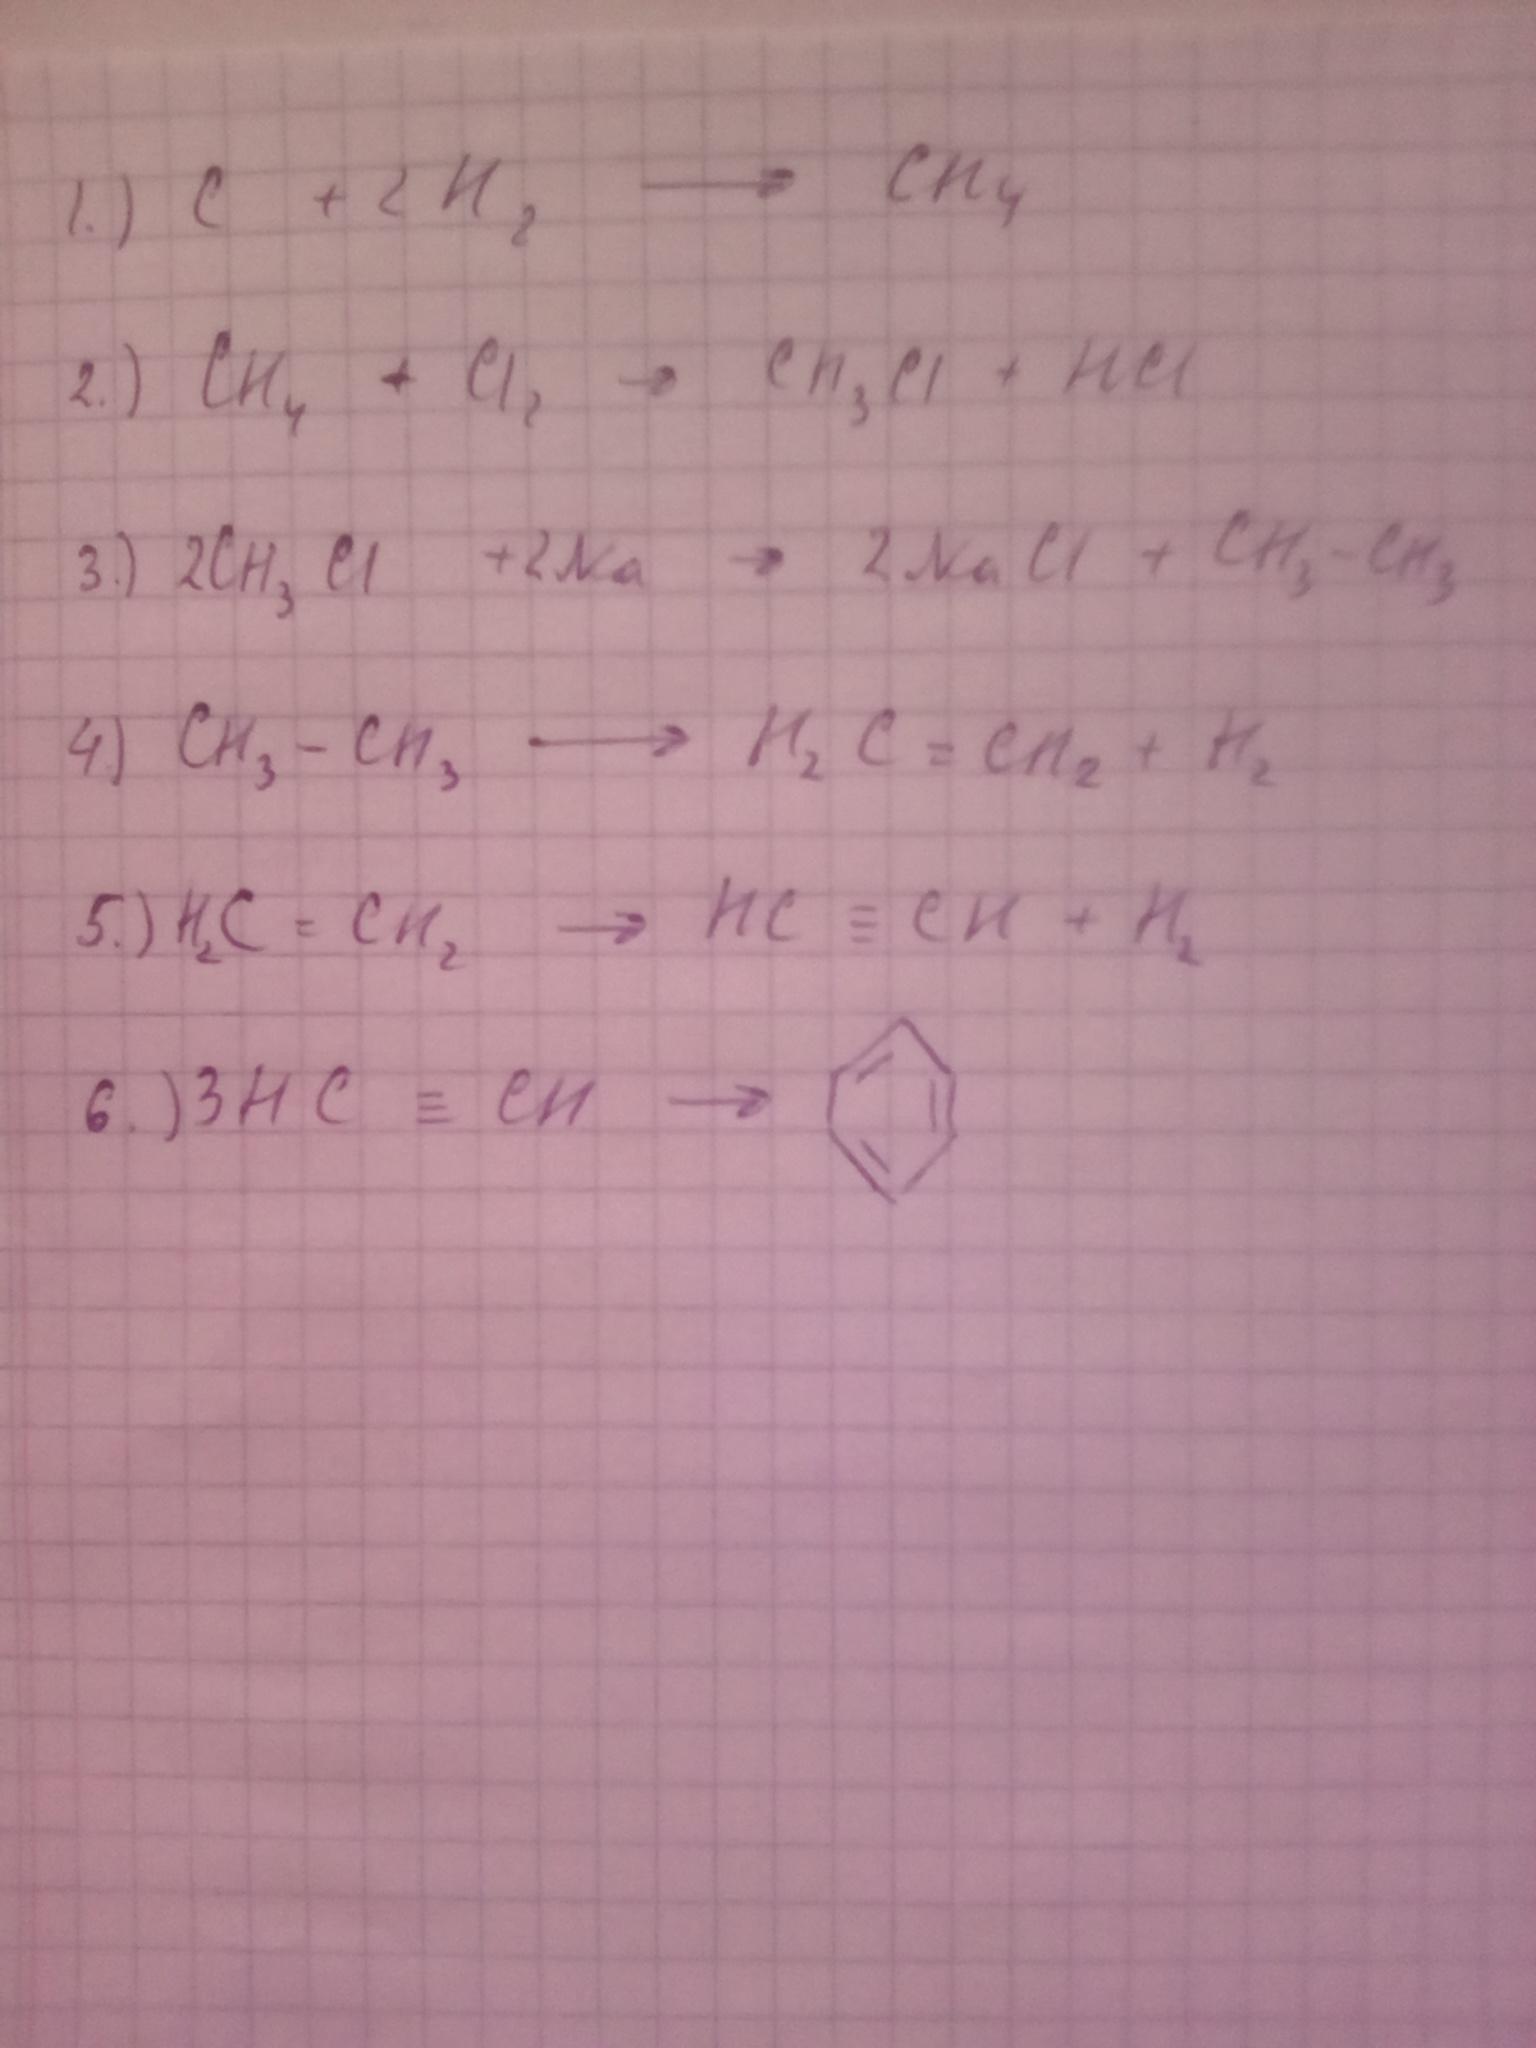 1.) C + 2 H₂ → CH₄
2.) CH₄ + Cl₂ → CH₃Cl + HCl
3.) 2CH₃Cl +2Na → 2NaCl + CH₃-CH₃
4.) CH₃-CH₃ → H₂C=CH₂ + H₂
5.) H₂C=CH₂ → HC≡CH + H₂
6.) 3HC≡CH →